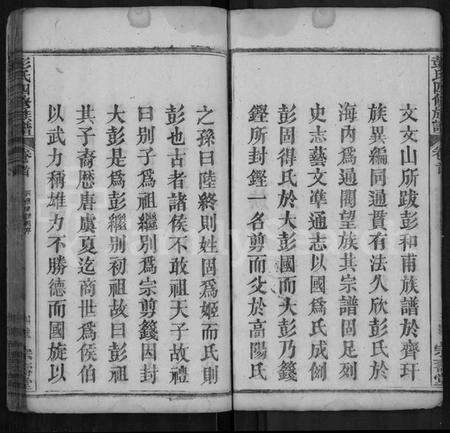 文文山所跋彭和甫族譜於齊玕
族異編同通貫有法久欣彭氏於
海內為通閥望族其宗譜固足列
史志藝文準通志以國為氏成例
彭固得氏於大彭國而大彭乃籛
鏗所封鏗一名剪而父於高陽氏
之孫曰陸終則姓固為姬而氏則
彭也古者諸侯不敢祖天子故禮
曰別子為祖繼別為宗剪籛因封
大彭是為彭繼別初祖故曰彭祖
其子裔歷唐虞夏迄商世為侯伯
以武力稱雄力不勝德而國旋以
彭氏四修族譜
卷首